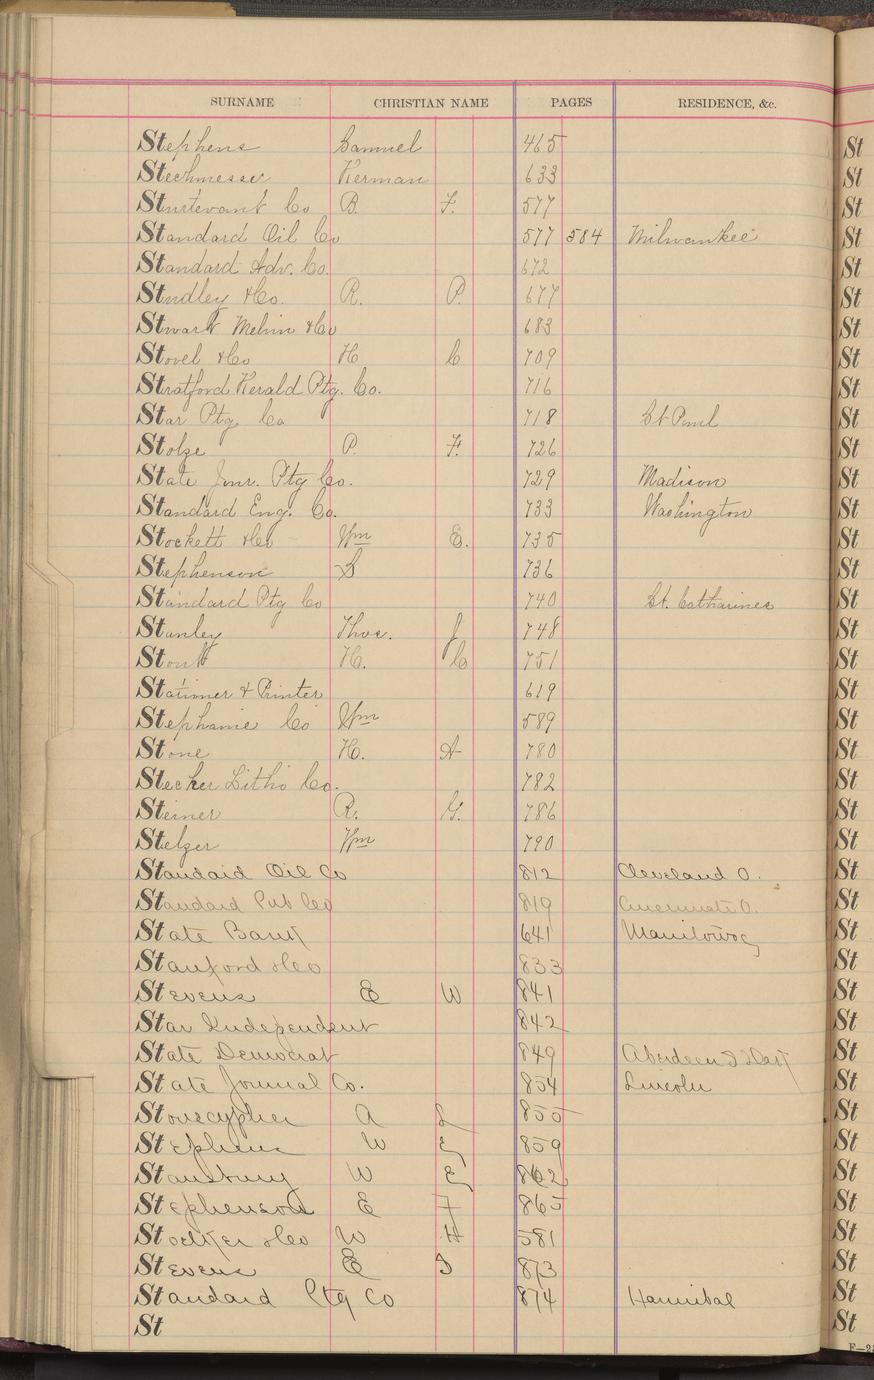 SURNAME CHRISTIAN NAME PAGES RESIDENCE, &c.
Stephens Samuel 465
Stechmesser Herman 633
Sturtevant Co B. F. 577
Standard Oil Co 577 584 Milwaukee
Standard Adv. Co. 672
Studley & Co. R. P. 677
Stuart Melvin & Co 683
Stovel & Co H C 709
Stratford Herald Ptg. Co. 716
Star Ptg Co 718 St Paul
Stolze P. F. 726
State Jour. Ptg Co. 729 Madison
Standard Eng. Co. 733 Washington
Stockett & Co Wm E. 735
Stephenson S 736
Standard Ptg Co 740 St. Catharines
Stanley Thos. J 748
Stoutt H. C 751
Stationer & Printer 619
Stephanie Co Wm 589
Stone H. A 780
Stecher Litho Co. 782
Steiner R. G. 786
Stelzer Wm 790
Standard Oil Co 812 Cleveland O.
Standard Pub Co 819 Cincinnati O.
State Bank 641 Manitowoc
Stanford & Co 833
Stevens E W 841
Star Independent 842
State Democrat 849 Aberdeen S Dak
State Journal Co. 854 Lincoln
Stonecypher A L 855
Stephens W E 859
Stansbury W E 862
Stephenson E F 865
Stoelker & Co W H 581
Stevens E I 873
Standard Ptg Co 874 Hannibal
St